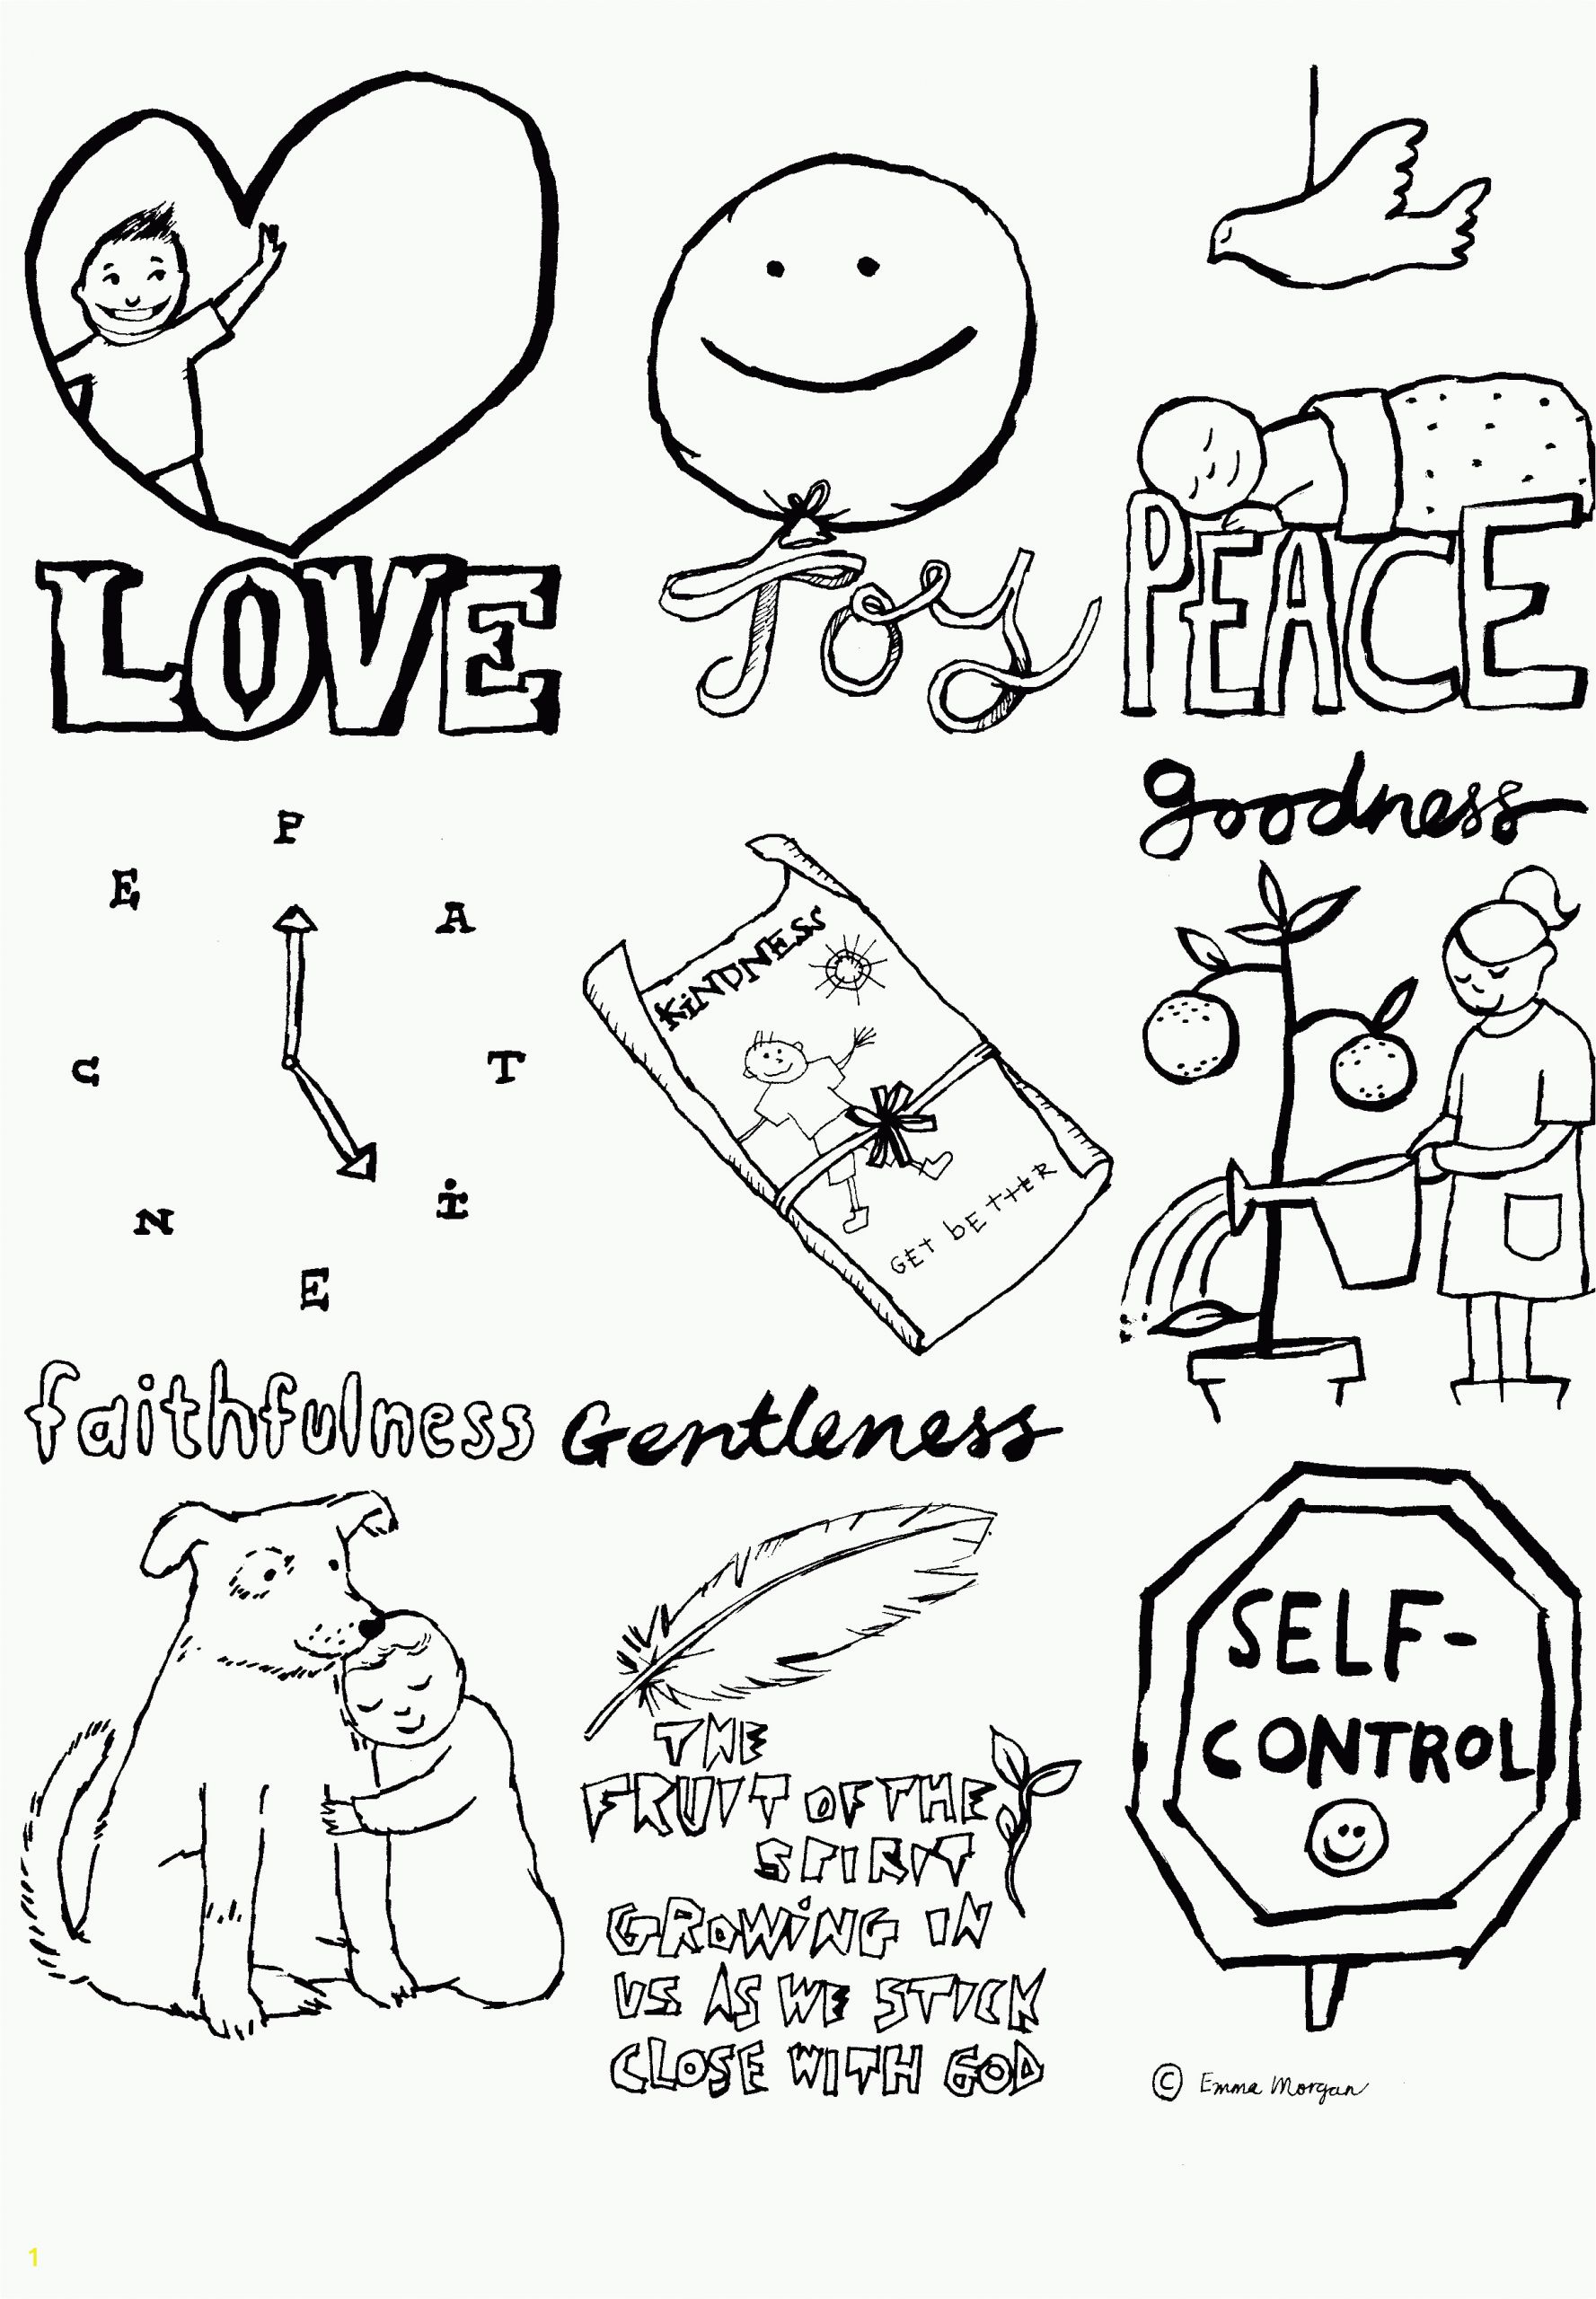 LOVE
Joy
PEACE
PATiENCE
KiNDNESS
GEt bEttER
goodness
faithfulness
Gentleness
THE
FRUIT OF THE
SPIRIT
GROWiNG IN
US AS WE STICK
CLOSE WITH GOD
SELF-
CONTROL
© Emma Morgan
1